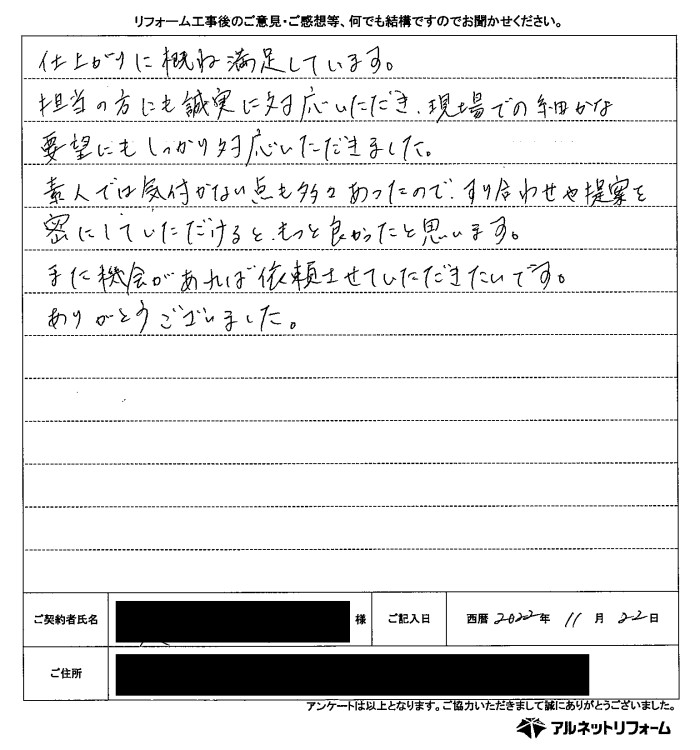 リフォーム工事後のご意見・ご感想等、何でも結構ですのでお聞かせください。
仕上がりに概ね満足しています。
担当の方にも誠実に対応いただき、現場での細かな
要望にもしっかり対応いただきました。
素人では気付かない点も多々あったので、すり合わせや提案を
密にしていただけると、もっと良かったと思います。
また機会があれば依頼させていただきたいです。
ありがとうございました。
ご契約者氏名 様 ご記入日 西暦 2022年 11月 22日
ご住所
アンケートは以上となります。ご協力いただきまして誠にありがとうございました。
アルネットリフォーム